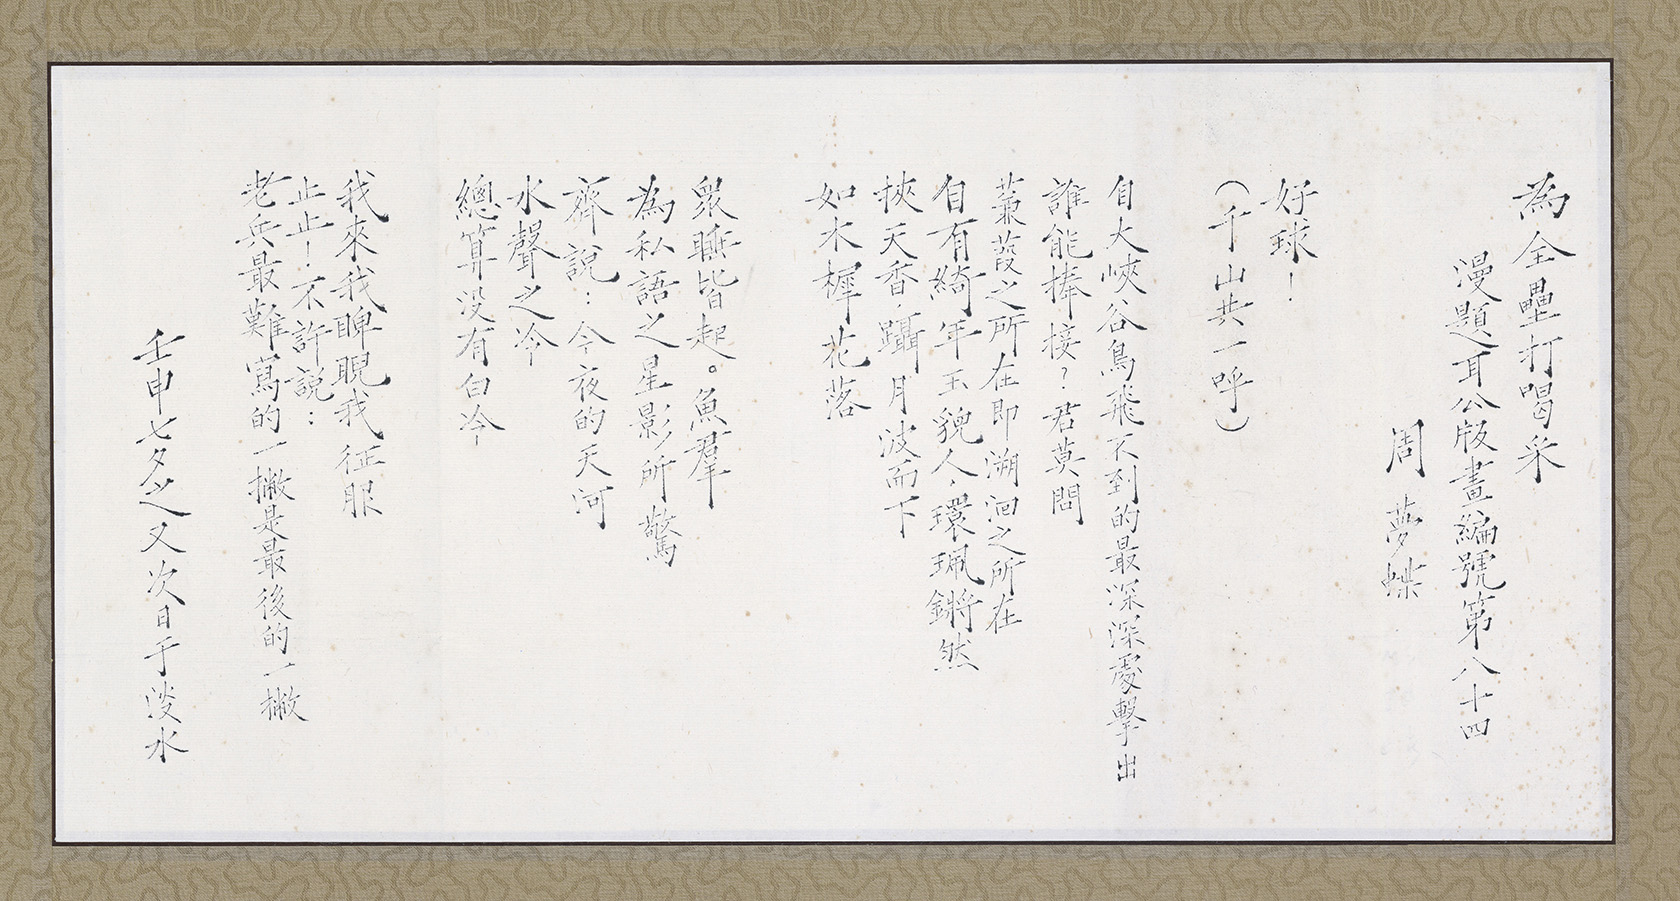 為全壘打喝采
漫題耳公版畫編號第八十四
周夢蝶
好球！
（千山共一呼）
自大峽谷鳥飛不到的最深深處擊出
誰能捧接？君莫問
蒹葭之所在即溯洄之所在
自有綺年玉貌人，環珮鏘然
挾天香，躡月波而下
如木樨花落
眾睡皆起。魚群
為私語之星影所驚
齊說：今夜的天河
水聲之冷
總算没有白冷
我來我睥睨我征服
止止！不許說：
老兵最難寫的一撇是最後的一撇
壬申七夕之又次日于淡水